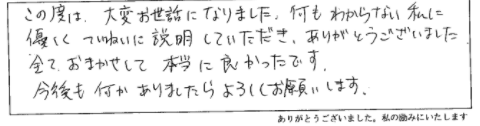 この度は、大変お世話になりました。何もわからない私に
優しく ていねいに説明していただき、ありがとうございました
全ておまかせして本当に良かったです。
今後も何かありましたらよろしくお願いします。
ありがとうございました。私の励みにいたします